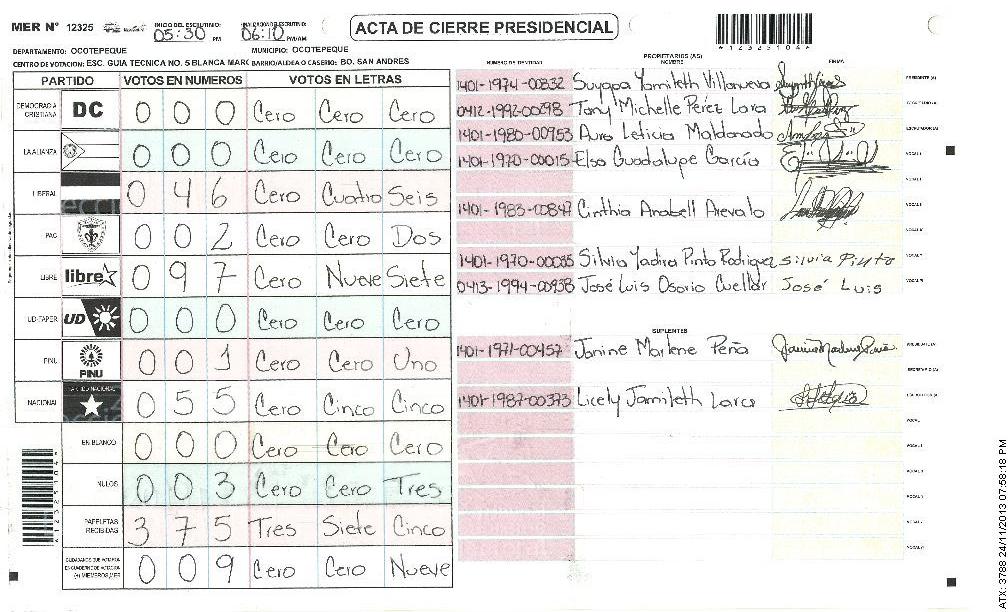 MER Nº 12325 INICIO DEL ESCRUTINIO: 05:30 PM FINALIZACION ESCRUTINIO: 06:10 PM/AM ACTA DE CIERRE PRESIDENCIAL
DEPARTAMENTO: OCOTEPEQUE MUNICIPIO: OCOTEPEQUE
CENTRO DE VOTACION: ESC. GUIA TECNICA NO. 5 BLANCA MARC BARRIO/ALDEA O CASERIO: BO. SAN ANDRES
PARTIDO VOTOS EN NUMEROS VOTOS EN LETRAS
DEMOCRACIA CRISTIANA DC 0 0 0 Cero Cero Cero
LA ALIANZA 0 0 0 Cero Cero Cero
LIBERAL 0 4 6 Cero Cuatro Seis
PAC 0 0 2 Cero Cero Dos
LIBRE libre 0 9 7 Cero Nueve Siete
UD-FAPER UD 0 0 0 Cero Cero Cero
PINU PINU 0 0 1 Cero Cero Uno
NACIONAL PARTIDO NACIONAL 0 5 5 Cero Cinco Cinco
EN BLANCO 0 0 0 Cero Cero Cero
NULOS 0 0 3 Cero Cero Tres
PAPELETAS RECIBIDAS 3 7 5 Tres Siete Cinco
CIUDADANOS QUE VOTARON EN CUADERNO DE VOTACION (+) MIEMBROS MER 0 0 9 Cero Cero Nueve
PROPIETARIOS (AS)
NUMERO DE IDENTIDAD NOMBRE FIRMA
1401-1974-00832 Suyapa Yamileth Villanueva PRESIDENTE (A)
0412-1992-00298 Tany Michelle Pérez Lara SECRETARIO (A)
1401-1980-00953 Aura Leticia Maldonado ESCRUTADOR (A)
1401-1970-00015 Elsa Guadalupe García VOCAL I
1401-1983-00847 Cinthia Anabell Arevalo
1401-1970-00035 Silvia Yadira Pinto Rodriguez Silvia Pinto
0413-1994-00938 José Luis Osorio Cuellar José Luis
SUPLENTES
1401-1971-00457 Janine Marlene Peña PRESIDENTE (A)
SECRETARIO (A)
1401-1987-00373 Licely Jamileth Lara ESCRUTADOR (A)
ATX: 3788 24/11/2013 07:58:18 PM